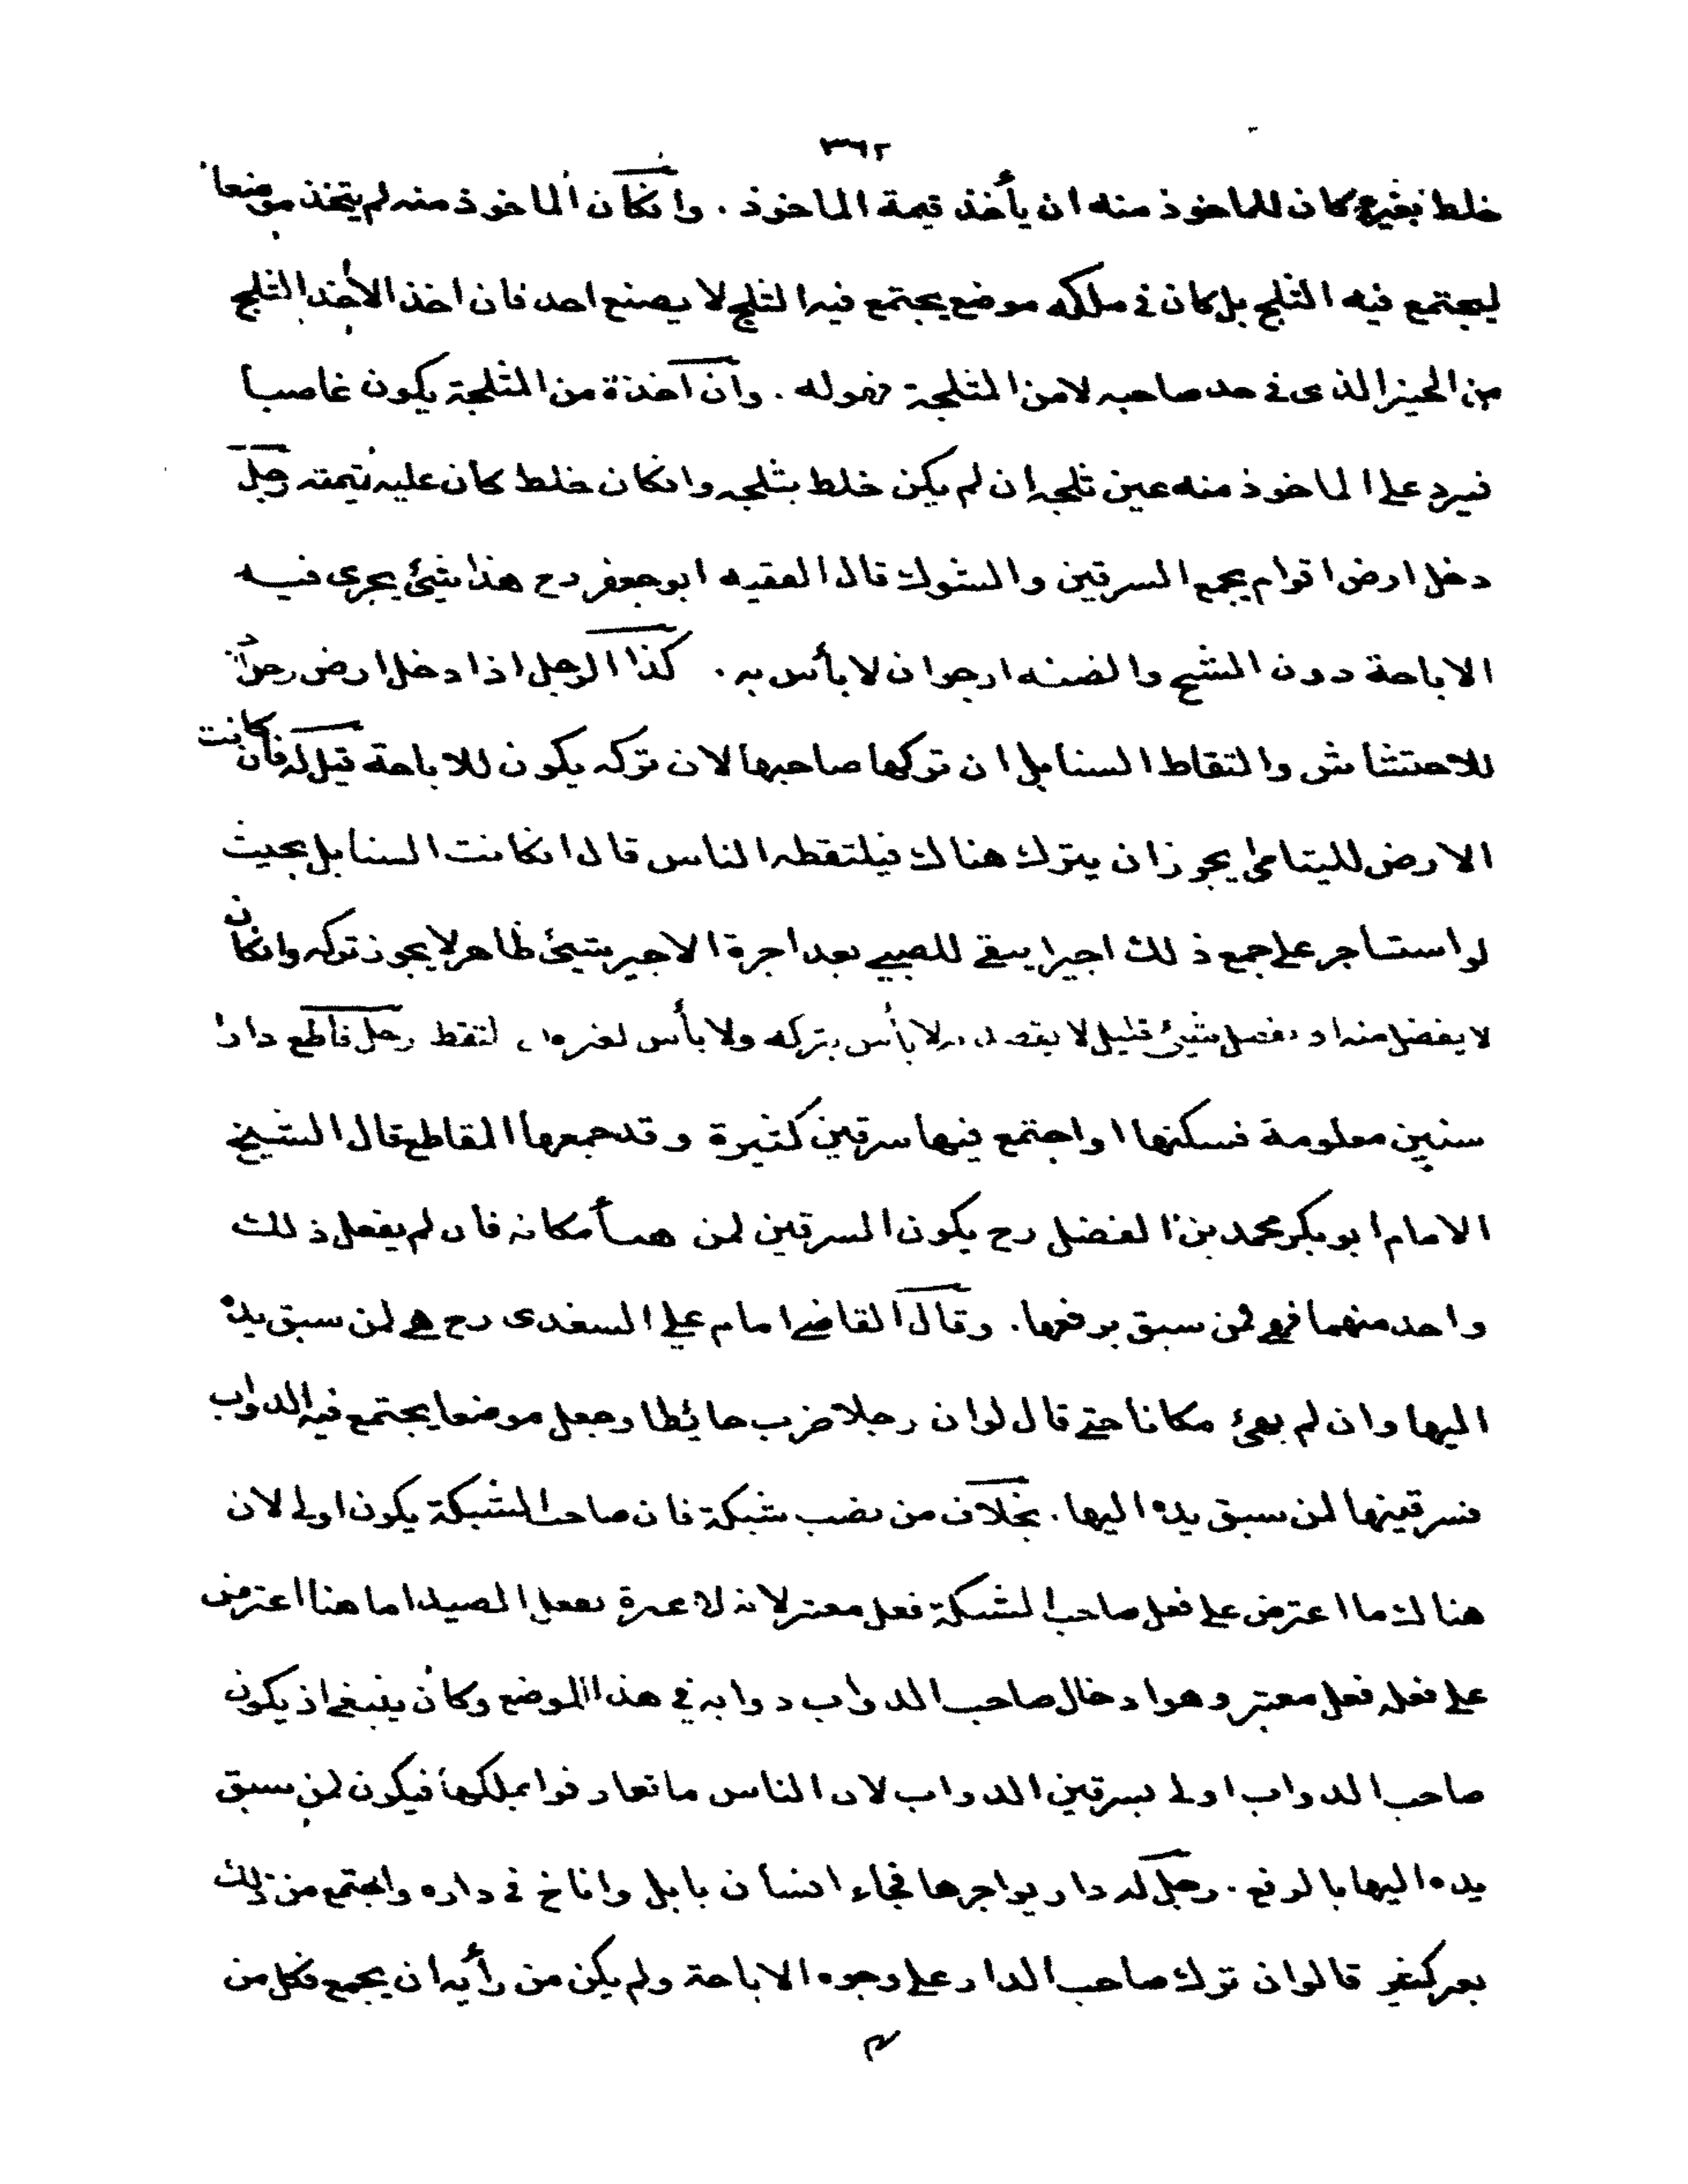 ٣٦٢
خلط بغيره كان للماخوذ منه ان يأخذ قيمة الماخوذ . وانكان الماخوذ منه لم يتخذ موضعا
ليجتمع فيه الثلج بل كان في ملكه موضع يجتمع فيه الثلج لا بصنع احد فان اخذ الأخذ الثلج
من الحيز الذى في حد صاحبه لا من المثلجة فهو له . وان اخذة من المثلجة يكون غاصبا
فيرد على الماخوذ منه عين ثلجه ان لم يكن خلط بثلجه وانكان خلط كان عليه قيمته رجل
دخل ارض اقوام يجمع السرقين والشوك قال الفقيه ابو جعفر رح هذا شيئ يجرى فيه
الاباحة دون الشح والضنه ارجوا ان لا بأس به . كذا الرجل اذا دخل ارض رجل
للاحتشاش والتقاط السنابل ان تركها صاحبها لان تركه يكون للاباحة قيل له فان كانت
الارض لليتامى يجوز ان يترك هناك فيلتقطه الناس قال انكانت السنابل بحيث
لو استاجر على جمع ذلك اجيرا يبقى للصبي بعد اجرة الاجير شيئ ظاهر لا يجوز تركه وانكان
لا يفضل منه او يفضل شيئ قليل لا يقصد لا بأس بتركه ولا بأس لغيره لتقط رجل قاطع دارا
سنين معلومة فسكنها او اجتمع فيها سرقين كثيرة وقد جمعها المقاطع قال الشيخ
الامام ابو بكر محمد بن الفضل رح يكون السرقين لمن هيأ مكانه فان لم يفعل ذلك
واحد منهما فهي لمن سبق برفعها . وقال القاضى امام على السغدى رح هي لمن سبق يده
اليها وان لم يهيئ مكانا حتى قال لو ان رجلا ضرب حائطا وجعل موضعا يجتمع فيه الدواب
فسرقينها لمن سبق يده اليها . بخلاف من نصب شبكة فان صاحب الشبكة يكون اولى لان
هناك ما اعترض على فعل صاحب الشبكة فعل معتبر لانه لا عبرة بفعل الصيد اما هنا اعترض
على فعله فعل معتبر وهو ادخال صاحب الدواب دوابه في هذا الموضع وكان ينبغى ان يكون
صاحب الدواب اولى بسرقين الدواب لان الناس ما تعارفوا بملكها فيكون لمن سبق
يده اليها بالرفع . رجل له دار يواجرها فجاء انسان بابل واناخ في داره واجتمع من ذلك
بعر كثير قالوا ان ترك صاحب الدار على وجوه الاباحة ولم يكن من رأيه ان يجمع فكل من